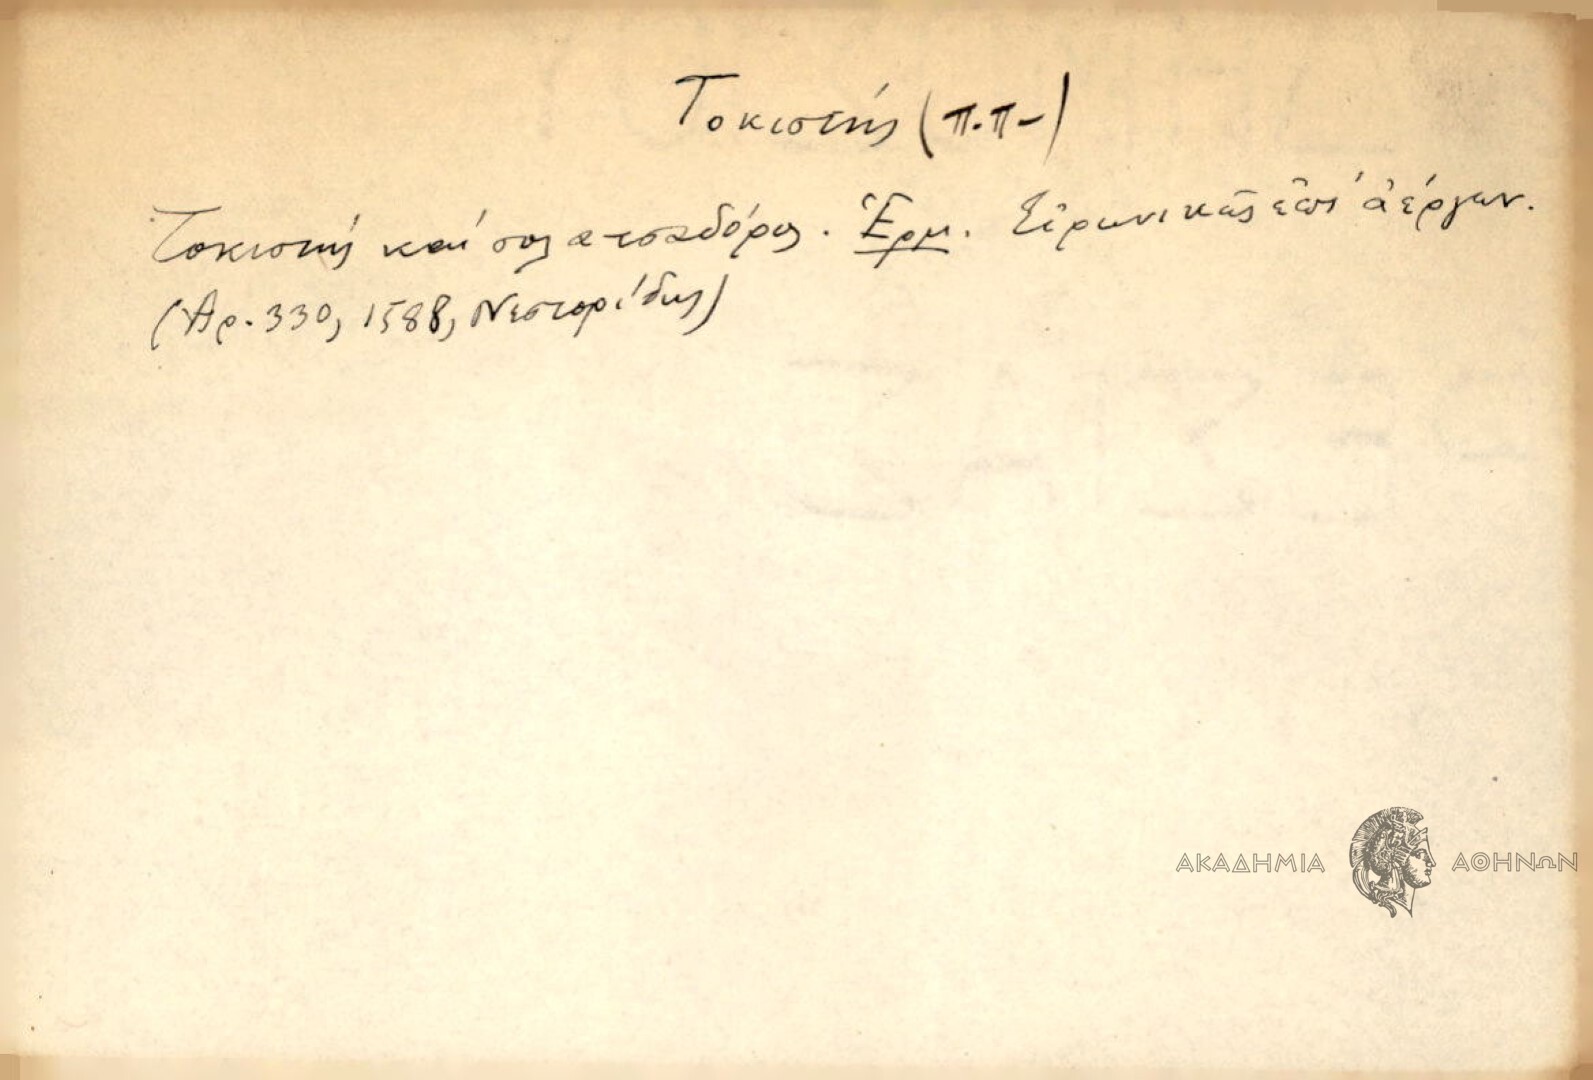 Τοκιστής (π.π-)
Τοκιστής καί σουλατσαδόρος. Ἑρμ. Εἰρωνικῶς ἐπί ἀέργων.
(Ἀρ. 330, 1588, Νεστορίδης)
ΑΚΑΔΗΜΙΑ ΑΘΗΝΩΝ